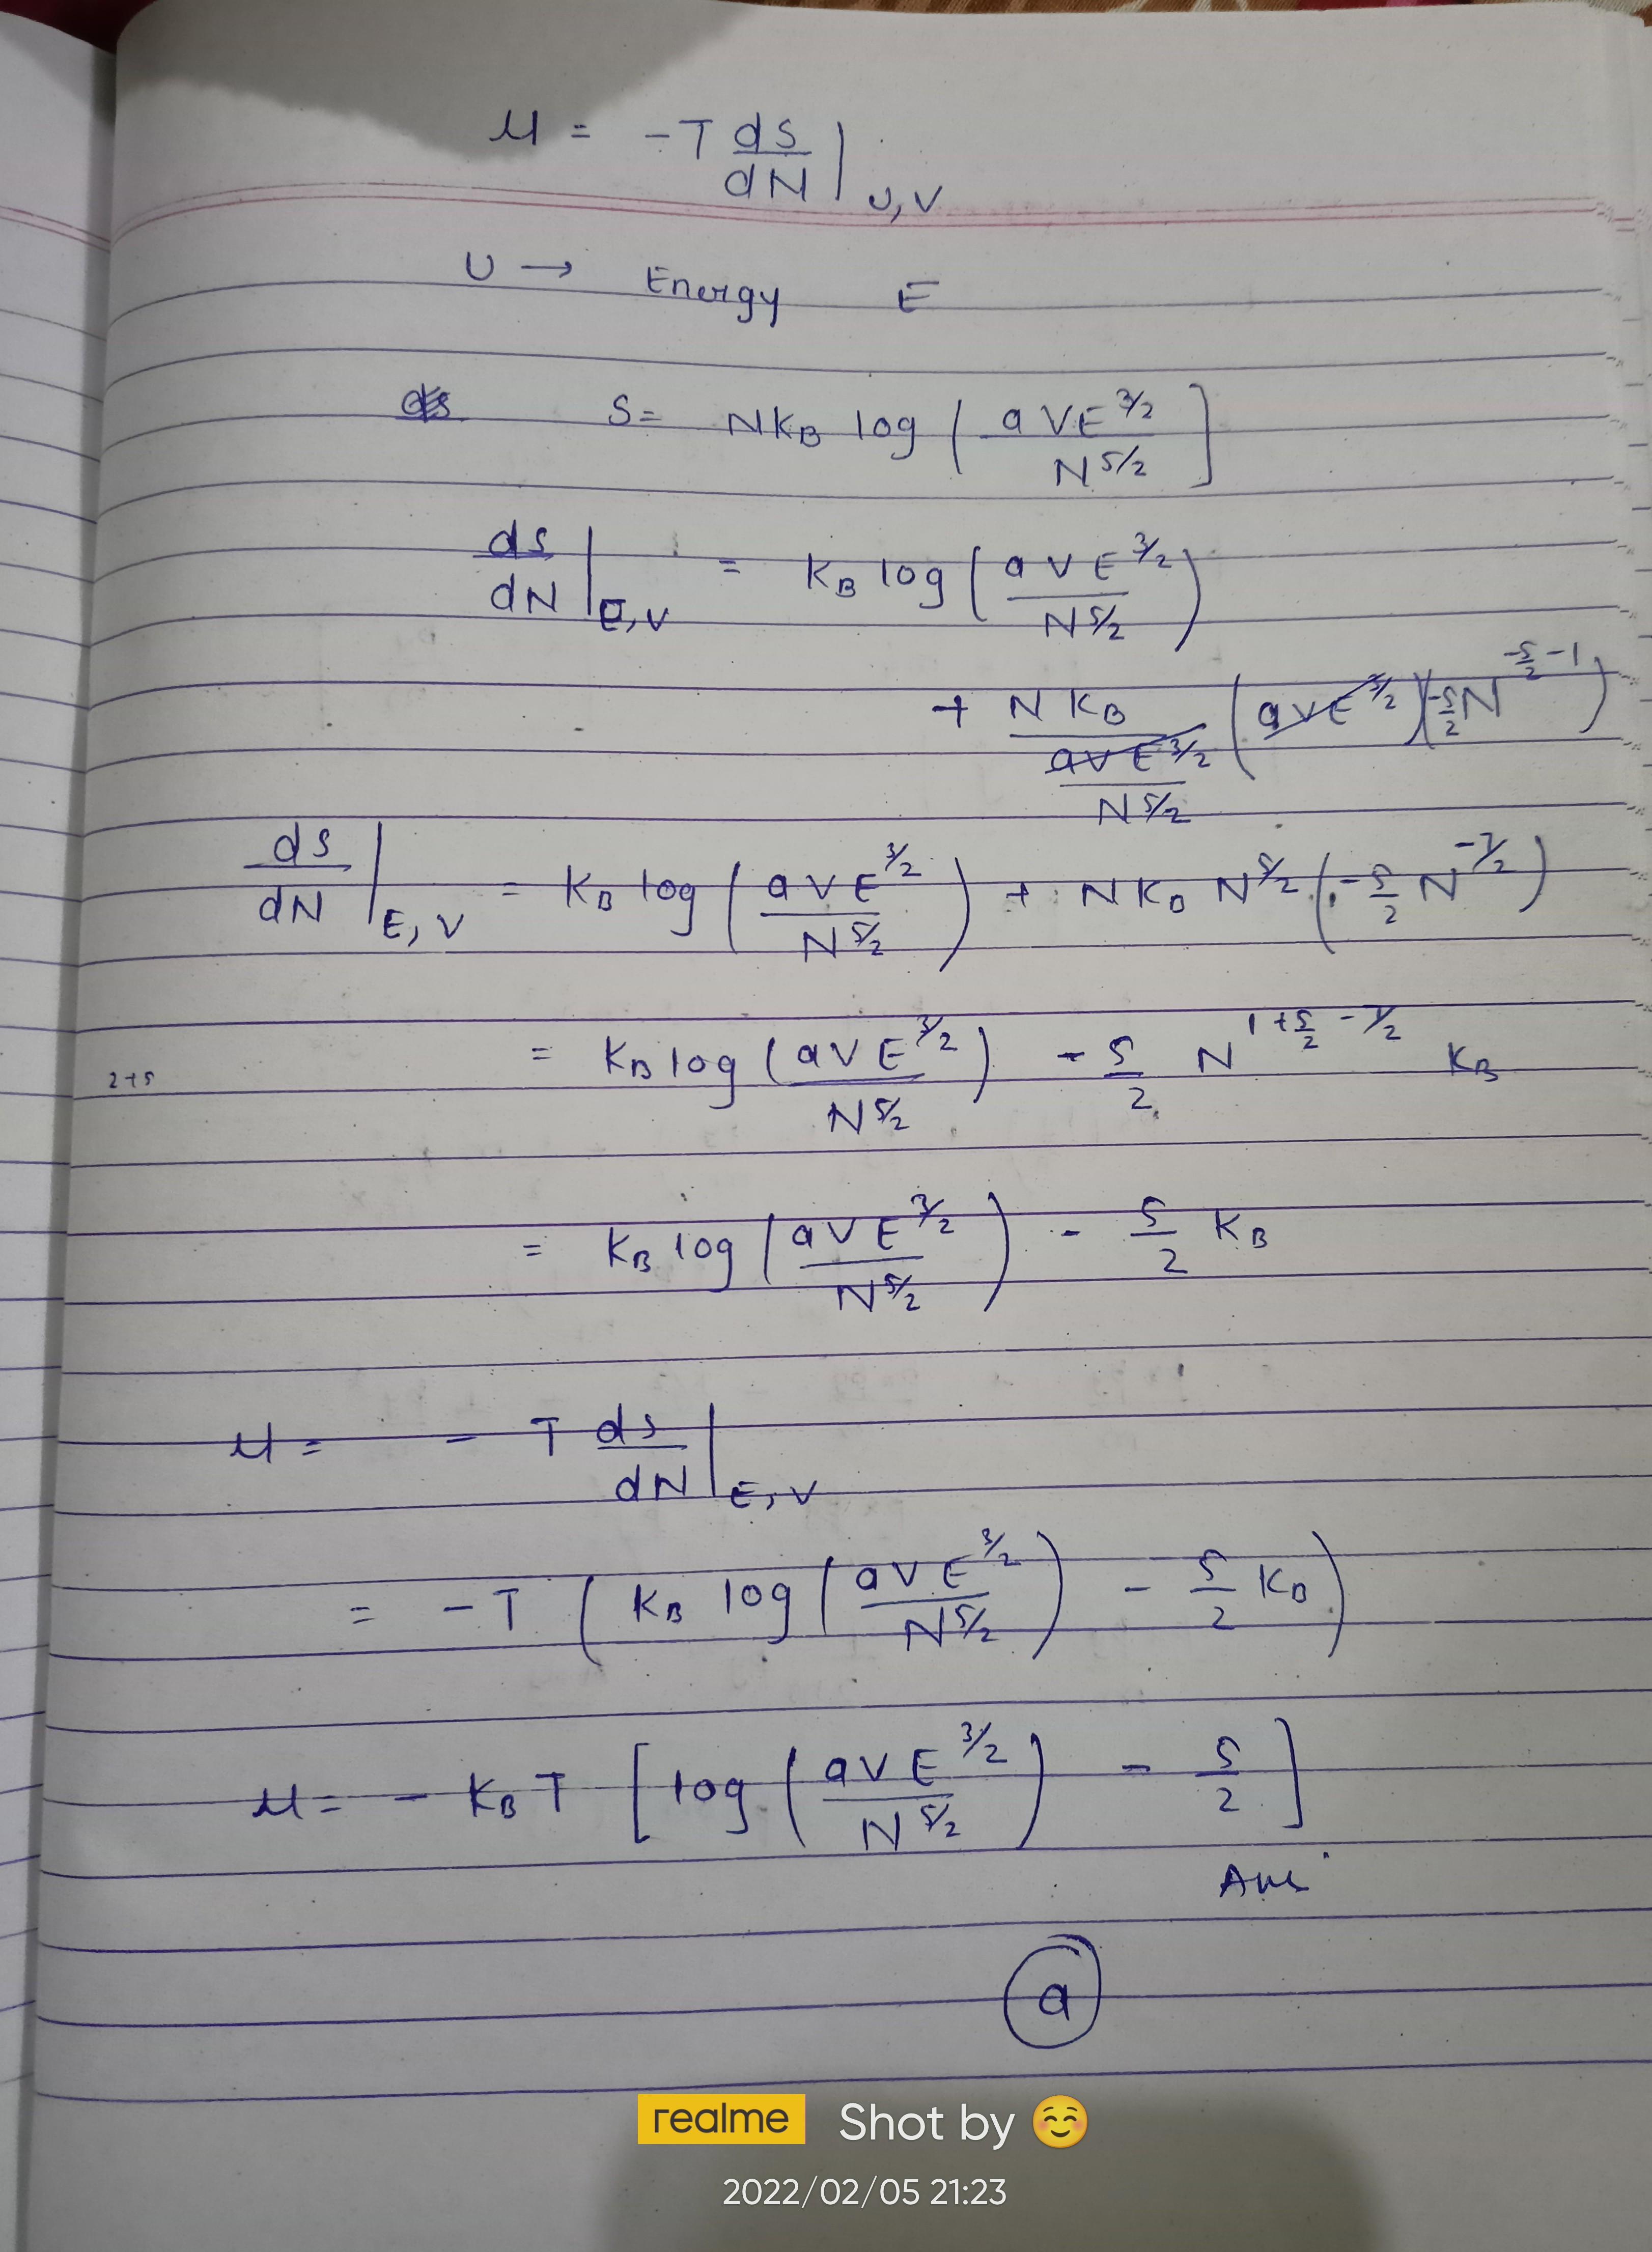 μ = -T dS/dN |U,V
U → Energy E
S = NKB log ( aVE^3/2 / N^5/2 ]
dS/dN |E,V = KB log ( aVE^3/2 / N^5/2 )
+ NKB / (aVE^3/2 / N^5/2) (aVE^3/2)(-5/2 N^-5/2-1)
dS/dN |E,V = KB log ( aVE^3/2 / N^5/2 ) + NKB N^5/2 (-5/2 N^-7/2)
= KB log ( aVE^3/2 / N^5/2 ) - 5/2 N^1+5/2-7/2 KB
2+5
= KB log ( aVE^3/2 / N^5/2 ) - 5/2 KB
μ = - T dS/dN |E,V
= -T ( KB log ( aVE^3/2 / N^5/2 ) - 5/2 KB )
μ = - KBT [ log ( aVE^3/2 / N^5/2 ) - 5/2 ]
Ans
a
realme Shot by 😊
2022/02/05 21:23